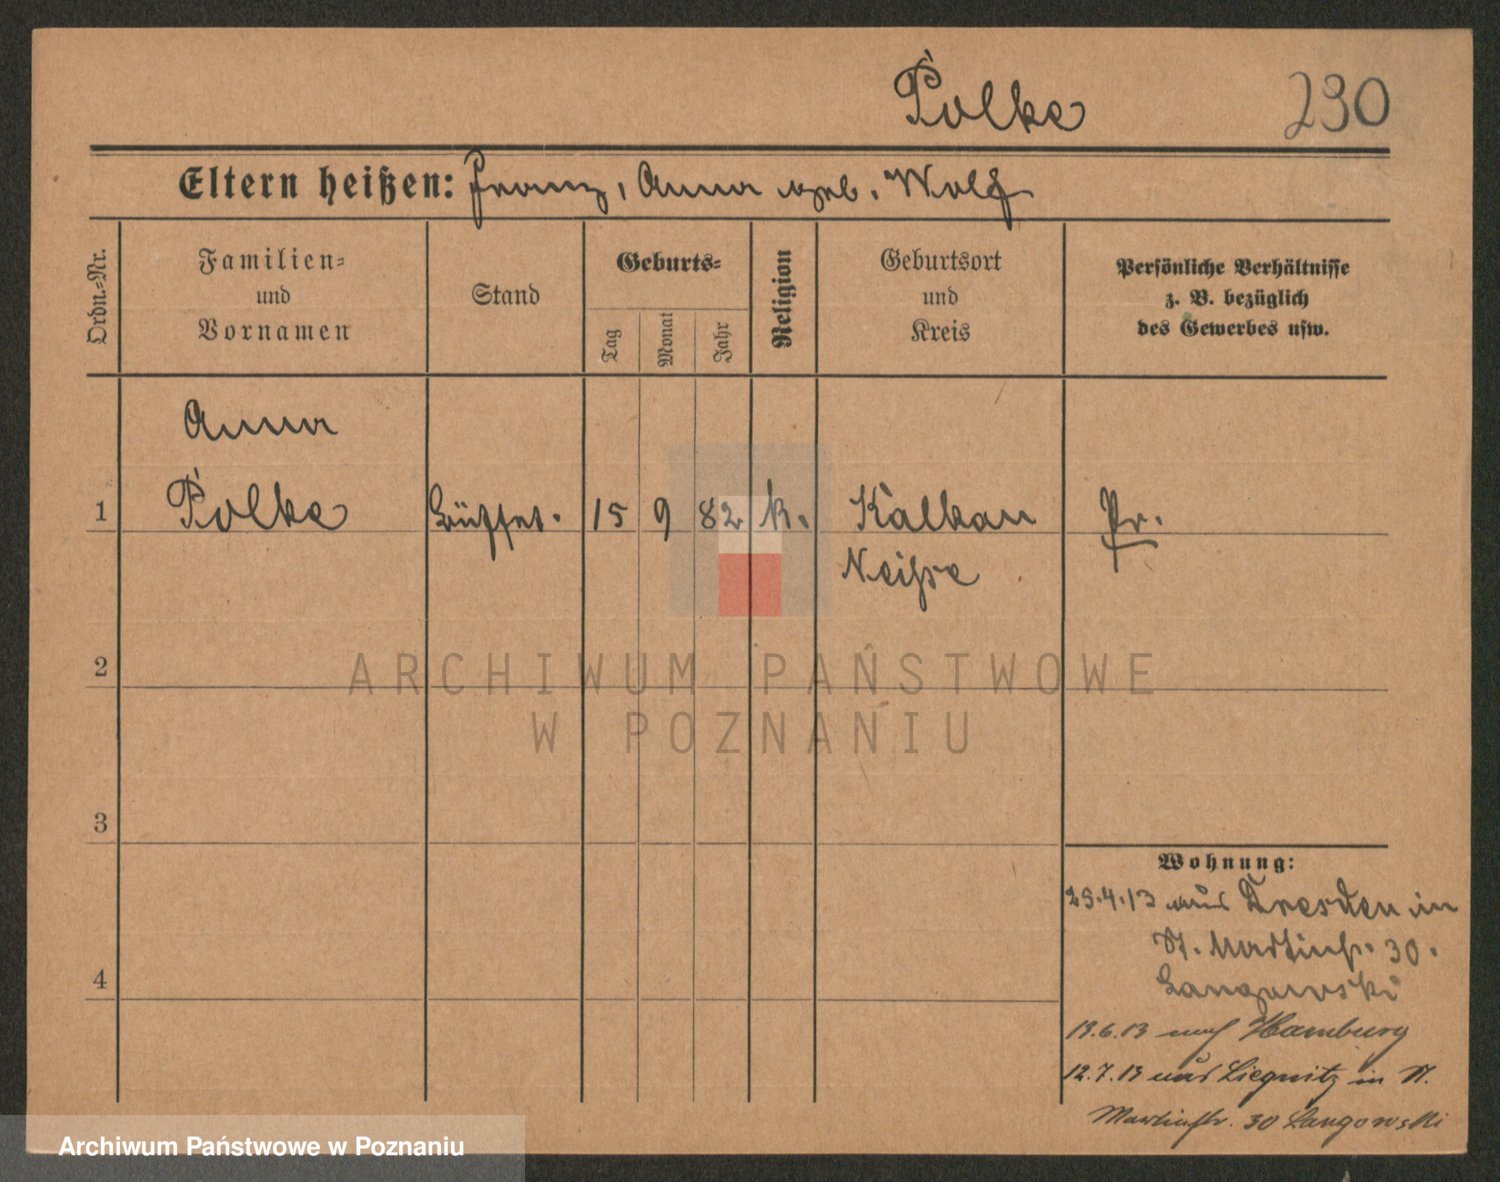 Polke 230
Eltern heißen: Franz, Anna geb. Wolf
Ordn.-Nr.
Familien-
und
Vornamen
Stand
Geburts-
Tag
Monat
Jahr
Religion
Geburtsort
und
Kreis
Persönliche Verhältnisse
z. B. bezüglich
des Gewerbes usw.
Anna
1 Polke Büffet. 15 9 82 k. Kalkau Pr.
Neiße
2
ARCHIWUM PAŃSTWOWE
W POZNANIU
3
Wohnung:
25.4.13 aus Dresden in
St. Martinstr. 30.
4
Langowski
13.6.13 nach Hamburg
12.7.13 aus Liegnitz in St.
Martinstr. 30 Langowski
Archiwum Państwowe w Poznaniu